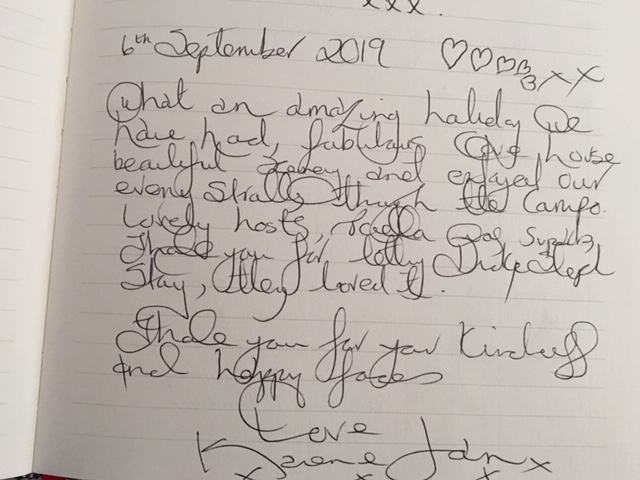 xxx.
6th September 2019 ♡♡♡ xx
What an amazing holiday We
have had, fabulous house
beautiful and enjoyed our
evening strolls through the Campo.
Lovely hosts, was superb,
Thank you for letting
Stay, they loved it.
Thank you for your kindness
And happy faces
Love
Jan x
x x x